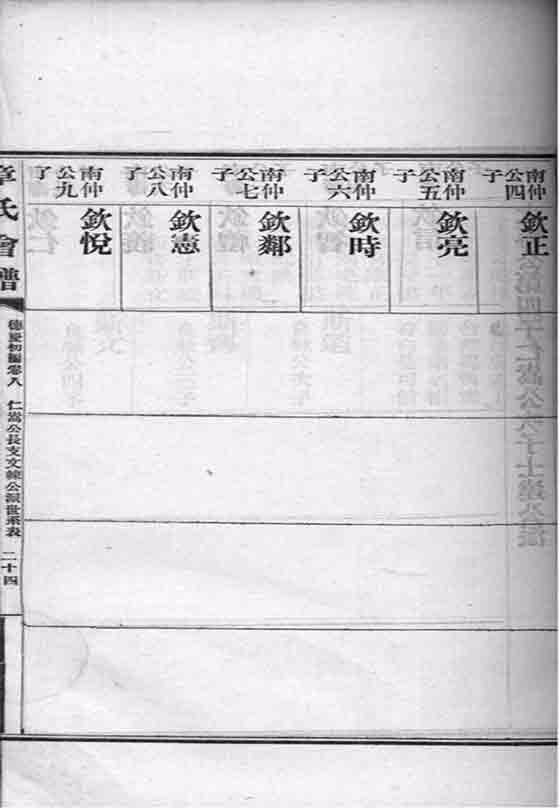 南仲
公四
子
欽正
南仲
公五
子
欽亮
南仲
公六
子
欽時
南仲
公七
子
欽鄰
南仲
公八
子
欽憲
南仲
公九
子
欽悅
章氏會譜
德慶初編卷八
仁嵩公長支文韓公派世系表
二十四